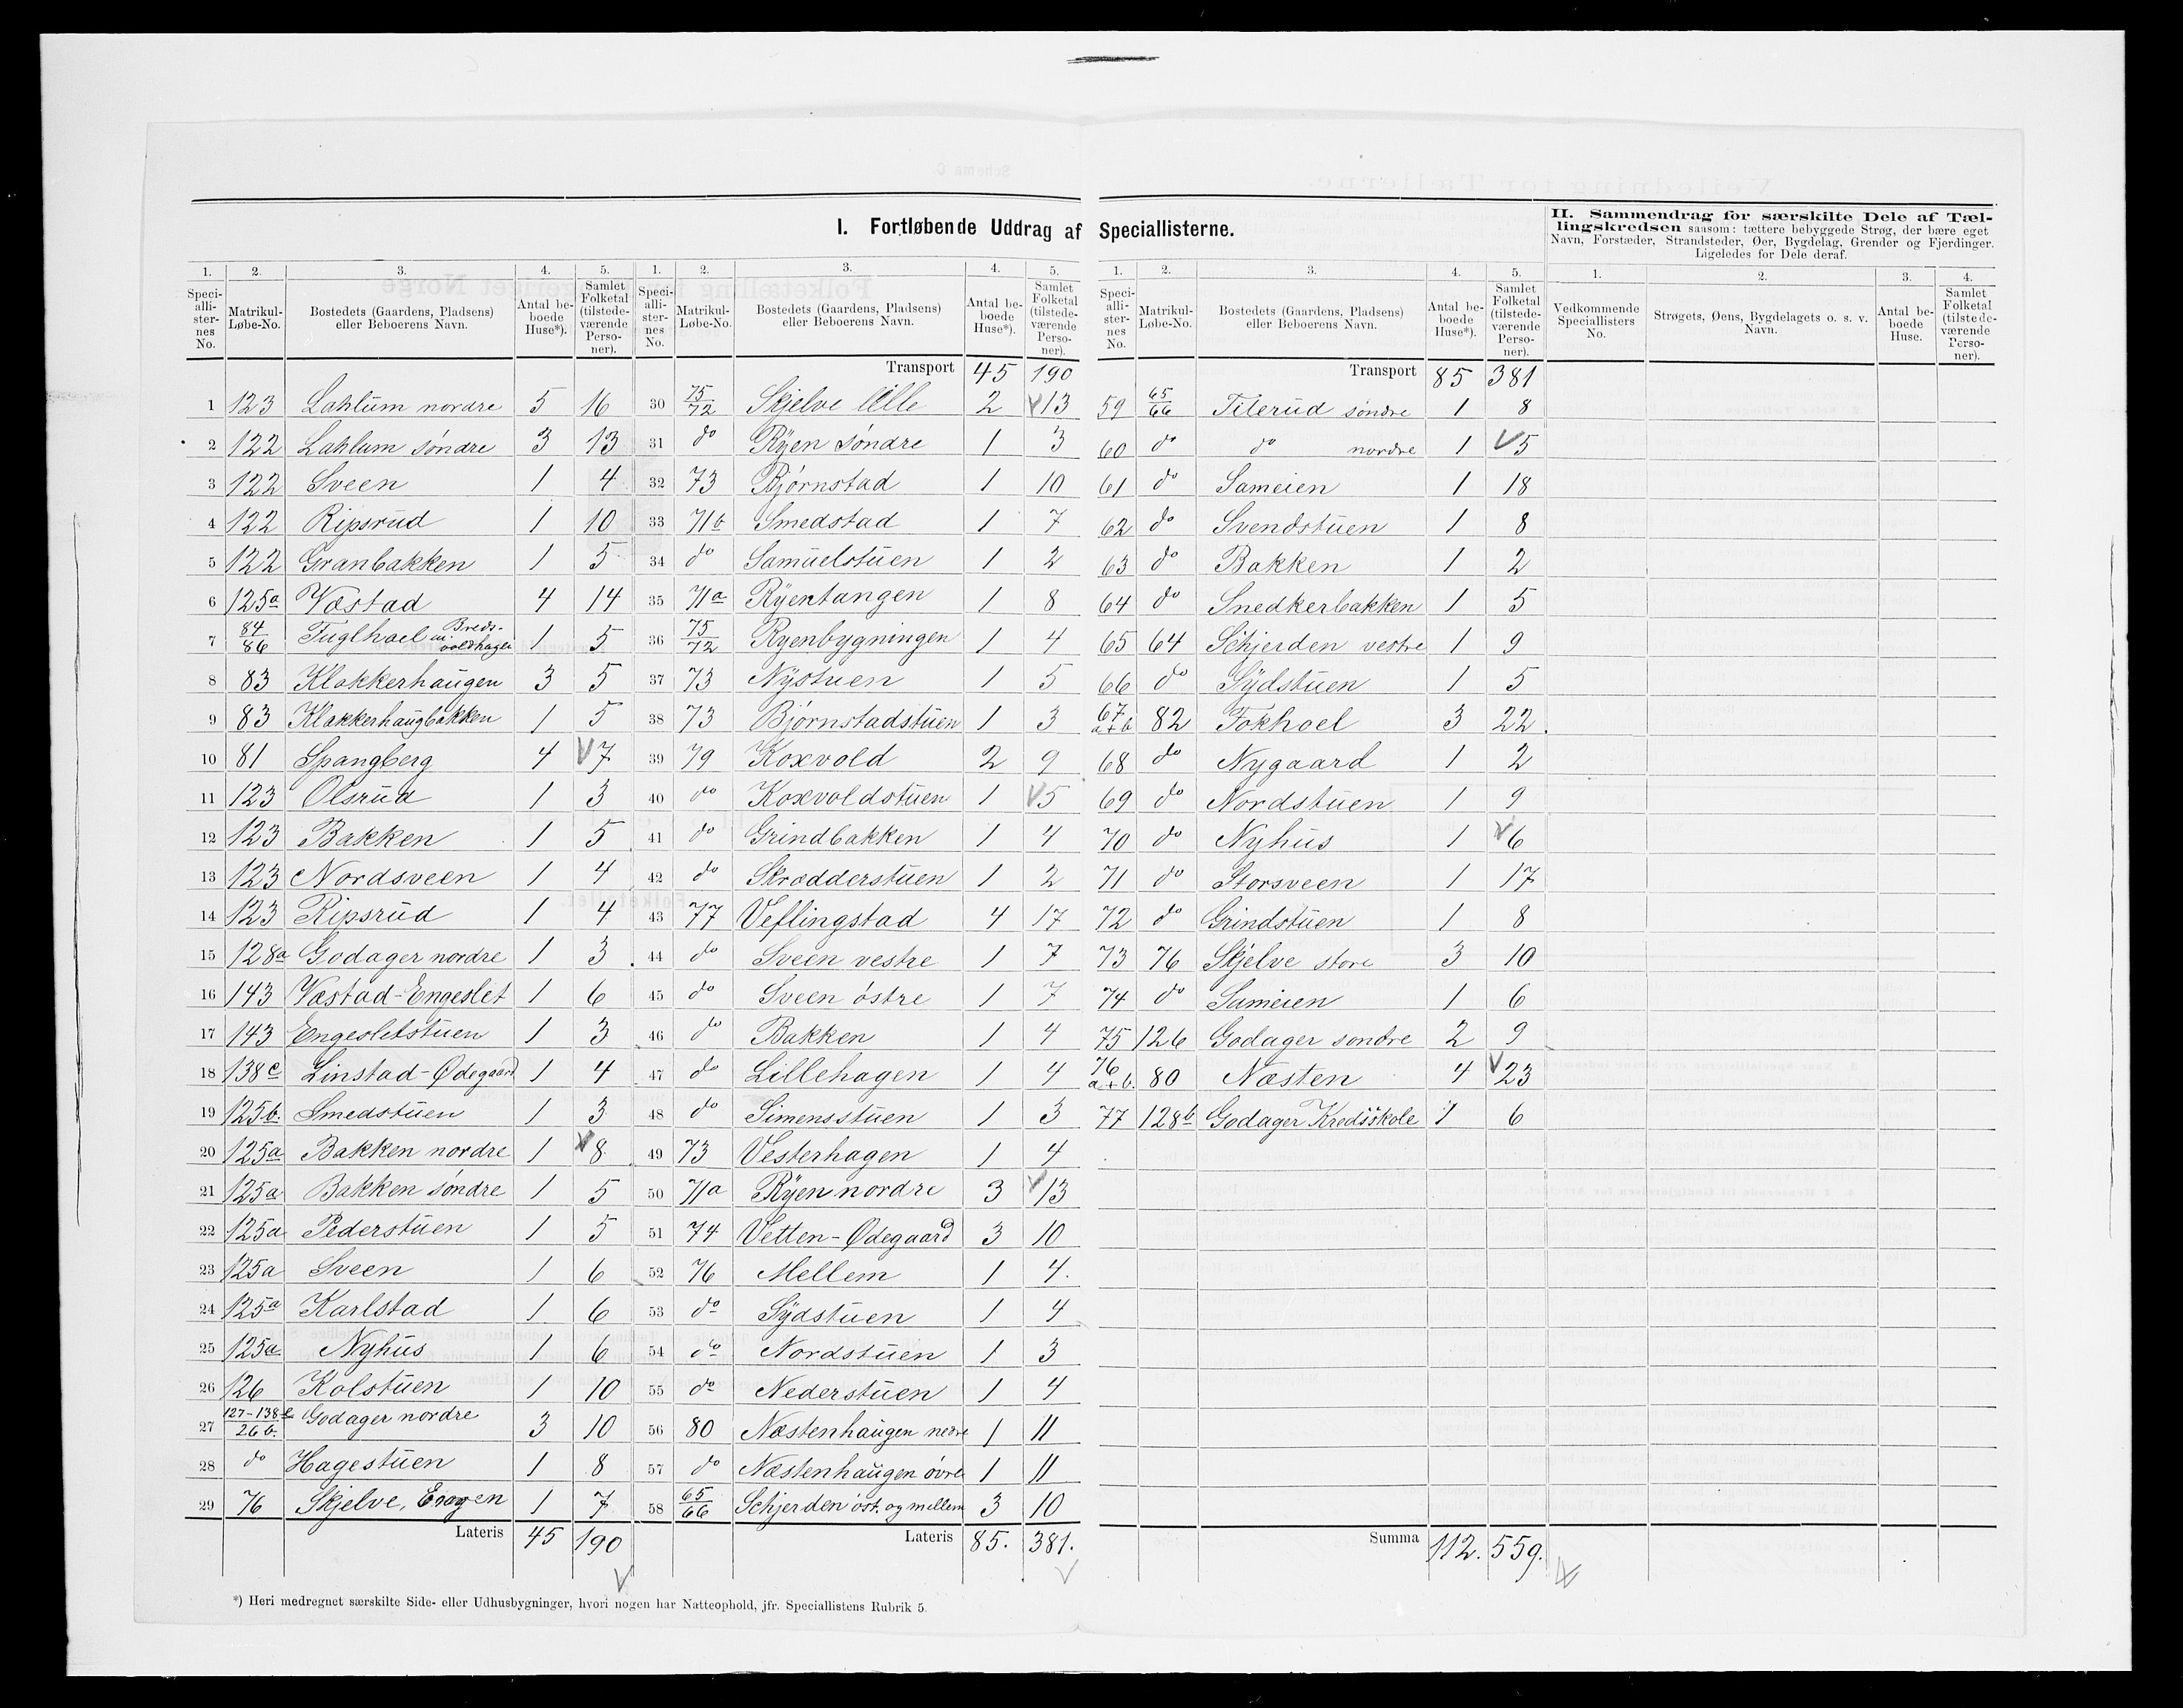 I. Fortløbende Uddrag af Speciallisterne.
II. Sammendrag for særskilte Dele af Tæl-
lingskredsen saasom: tættere bebyggede Strøg, der bære eget
Navn, Forstæder, Strandsteder, Øer, Bygdelag, Grender og Fjerdinger.
Ligeledes for Dele deraf.
1. 2. 3. 4. 5.
Speci-alli-ster-nes No. Matrikul-Løbe-No. Bostedets (Gaardens, Pladsens) eller Beboerens Navn. Antal be-boede Huse*). Samlet Folketal (tilstede-værende Perso-ner).
1 123 Lahlum nordre 5 16
2 122 Lahlum søndre 3 13
3 122 Sveen 1 4
4 122 Ripsrud 1 10
5 122 Granbakken 1 5
6 125a Væstad 4 14
7 84/86 Fuglhoel m. Breds-voldhagen 1 5
8 83 Klakkerhaugen 3 5
9 83 Klakkerhaugbakken 1 5
10 81 Spangberg 4 7
11 123 Olsrud 1 3
12 123 Bakken 1 5
13 123 Nordsveen 1 4
14 123 Ripsrud 1 4
15 128a Godager nordre 1 3
16 143 Væstad-Engeslet 1 6
17 143 Engesletstuen 1 3
18 138c Linstad-Ødegaard 1 4
19 125b. Smedstuen 1 3
20 125a Bakken nordre 1 8
21 125a Bakken søndre 1 5
22 125a Pederstuen 1 5
23 125a Sveen 1 6
24 125a Karlstad 1 6
25 125a Nyhus 1 6
26 126 Kolstuen 1 10
27 127-138e/26b. Godager nordre 3 10
28 do Hagestuen 1 8
29 76 Skjelve, Engen 1 7
Lateris 45 190
1. 2. 3. 4. 5.
Speci-alli-ster-nes No. Matrikul-Løbe-No. Bostedets (Gaardens, Pladsens) eller Beboerens Navn. Antal be-boede Huse*). Samlet Folketal (tilstede-værende Perso-ner).
Transport 45 190
30 75/72 Skjelve lille 2 13
31 do Ryen søndre 1 3
32 73 Bjørnstad 1 10
33 71b Smedstad 1 7
34 do Samuelstuen 1 2
35 71a Ryentangen 1 8
36 75/72 Ryenbygningen 1 4
37 73 Nystuen 1 5
38 73 Bjørnstadstuen 1 3
39 79 Koxvold 2 9
40 do Koxvoldstuen 1 5
41 do Grindbakken 1 4
42 do Skrædderstuen 1 2
43 77 Veflingstad 4 17
44 do Sveen vestre 1 7
45 do Sveen østre 1 7
46 do Bakken 1 4
47 do Lillehagen 1 4
48 do Simensstuen 1 3
49 73 Vesterhagen 1 4
50 71a Ryen nordre 3 13
51 74 Vetten-Ødegaard 3 10
52 76 Mellem 1 4.
53 do Sydstuen 1 4
54 do Nordstuen 1 3
55 do Nederstuen 1 4
56 80 Næstenhaugen nedre 1 11
57 do Næstenhaugen øvre 1 11
58 65/66 Schjerden øst. og mellem 3 10
Lateris 85. 381.
1. 2. 3. 4. 5.
Speci-alli-ster-nes No. Matrikul-Løbe-No. Bostedets (Gaardens, Pladsens) eller Beboerens Navn. Antal be-boede Huse*). Samlet Folketal (tilstede-værende Perso-ner).
Transport 85 381
59 65/66 Tilerud søndre 1 8
60 do do nordre 1 5
61 do Sameien 1 18
62 do Svendstuen 1 8
63 do Bakken 1 2
64 do Snedkerbakken 1 5
65 64 Schjerden vestre 1 9
66 do Sydstuen 1 5
67 a+b 82 Fokhoel 3 22.
68 do Nygaard 1 2
69 do Nordstuen 1 9
70 do Nyhus 1 6
71 do Storsveen 1 17
72 do Grindstuen 1 8
73 76 Skjelve store 3 10
74 do Sameien 1 6
75 126 Godager søndre 2 9
76 a+b. 80 Næsten 4 23
77 128b Godager Kredsskole 1 6
Summa 112. 559.
1. 2. 3. 4.
Vedkommende Speciallisters No. Strøgets, Øens, Bygdelagets o. s. v. Navn. Antal be-boede Huse. Samlet Folketal (tilstede-værende Perso-ner).
*) Heri medregnet særskilte Side- eller Udhusbygninger, hvori nogen har Natteophold, jfr. Speciallistens Rubrik 5.